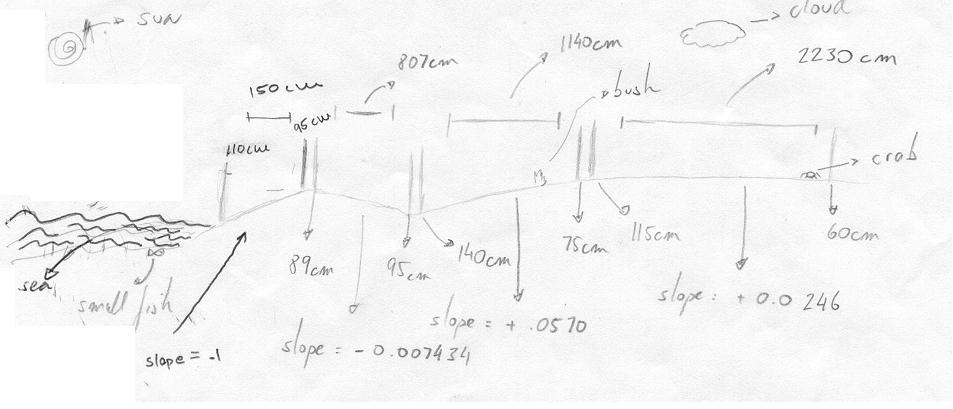 sun
cloud
1140cm
807cm
2230 cm
150cm
bush
95cm
110cm
crab
60cm
75cm
115cm
140cm
89cm
95cm
sea
small fish
slope: +0.0246
slope = +.0570
slope = -0.007434
slope = -.1